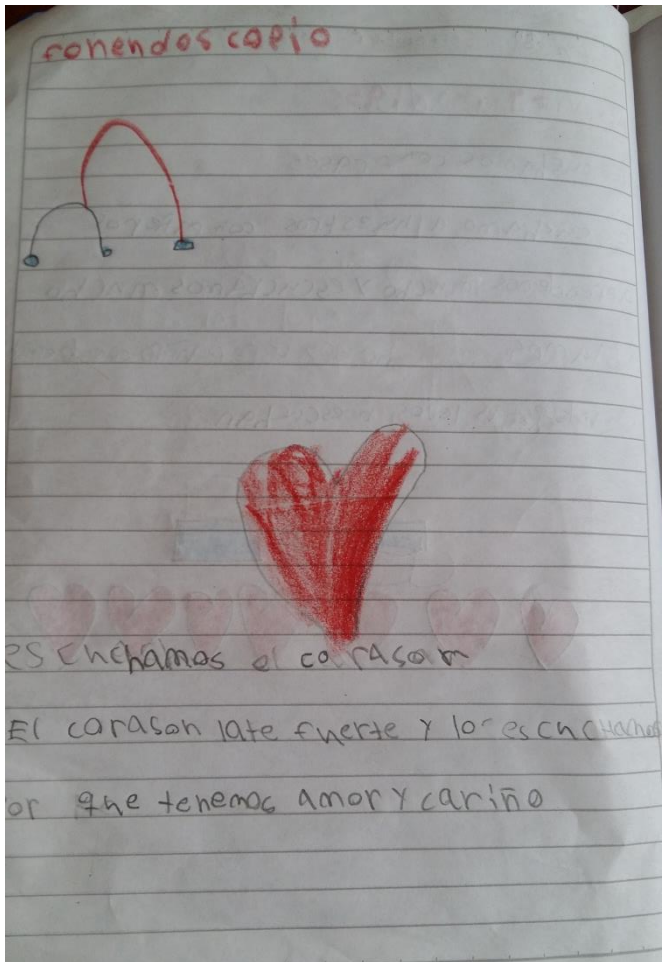 fonendoscopio
escuchamos el carason
El carason late fuerte y lo escuchamos
or que tenemos amor y cariño